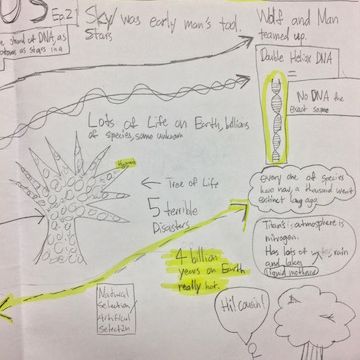 OS
Ep.2
Sky/ was early man's tool.
Stars
strand of DNA, as
atoms as stars in a
Wolf and Man
teamed up.
Double Helix DNA
=
No DNA the
exact same
Lots of Life on Earth, billions
of species, some unknown
← Tree of Life
5 terrible
Disasters
Every one of species
we have now, a thousand went
extinct long ago
Titan's atmosphere is
nitrogen.
Has lots of rain
and lakes
(liquid methane)
4 billion
years on Earth
really hot.
Natural
Selection/
Artificial
Selection
Hi! cousin!